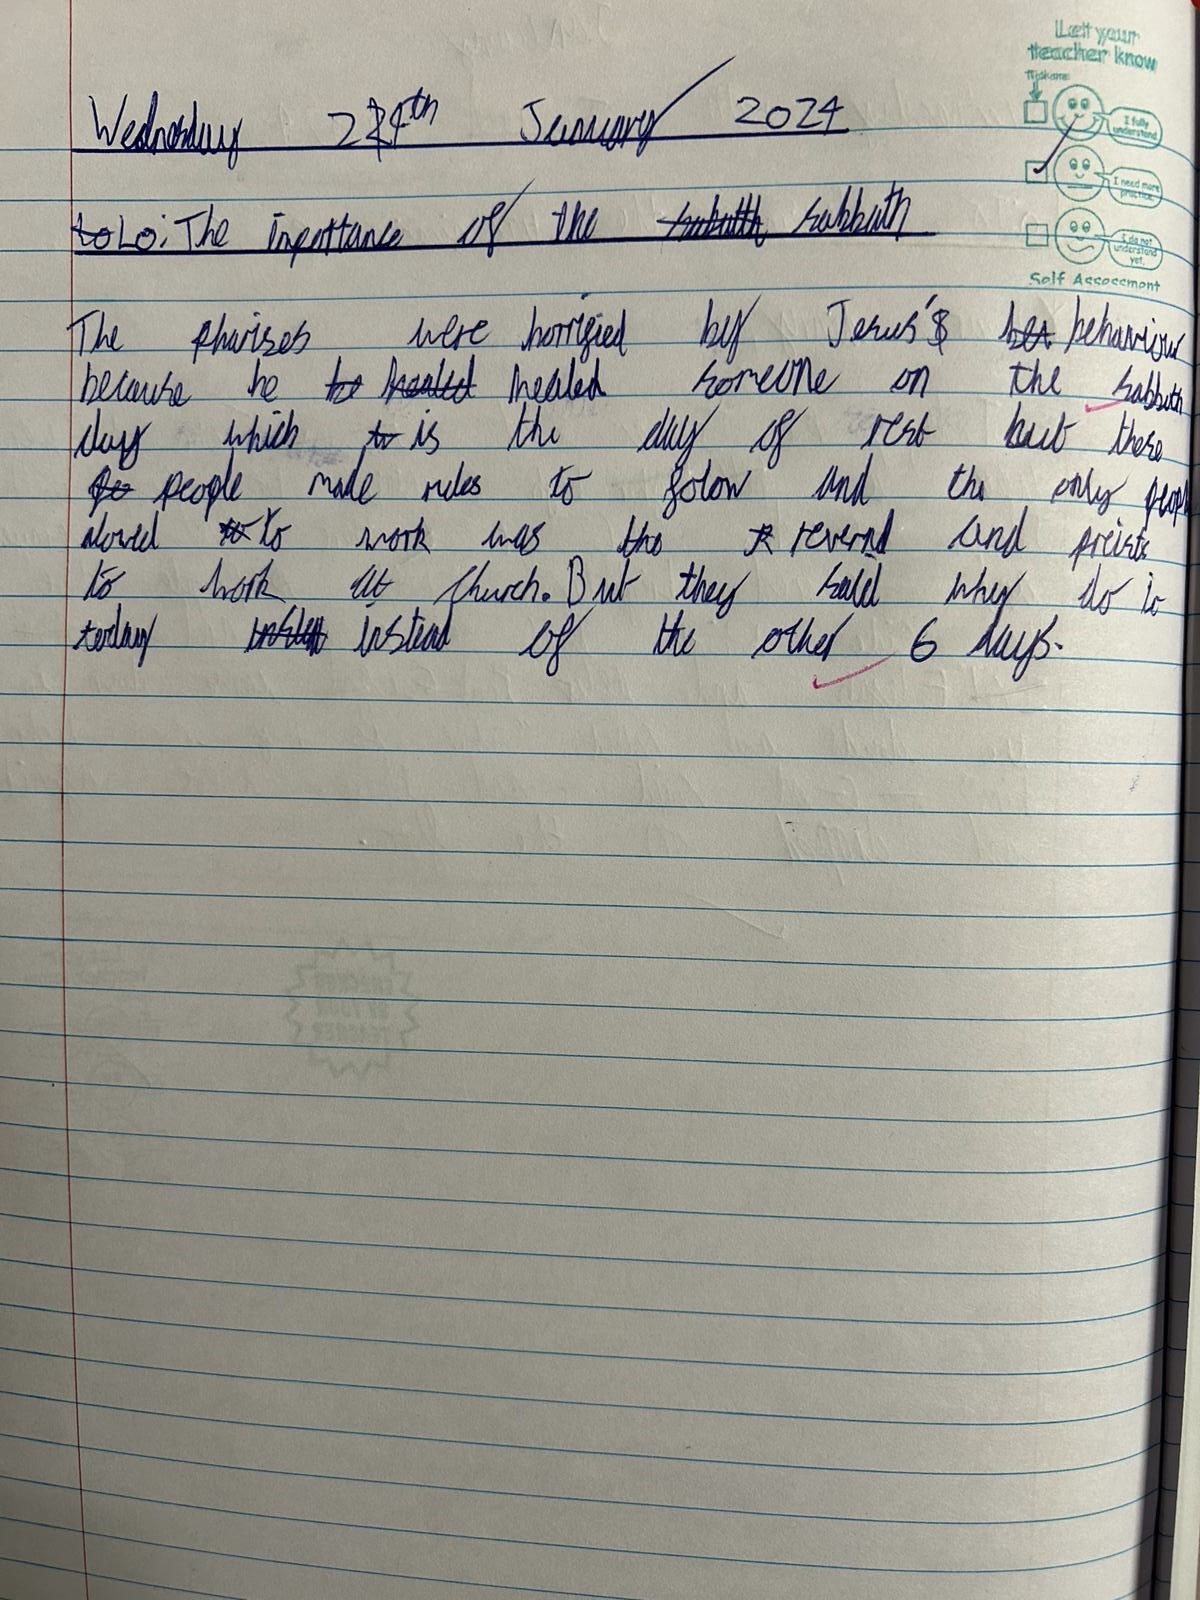 Let your
teacher know
Tick one
I fully
understand.
I need more
practice.
I do not
understand
yet.
Self Assessment
Wednesday 24th January 2024
Lo: The importtance of the sabbath
The pharises were horrified by Jesus's behaviour
because he healed someone on the sabbath
day which is the day of rest but these
people made rules to folow and the only people
alowed to work was the revernd and preists
to work at church. But they said why do it
today instead of the other 6 days.